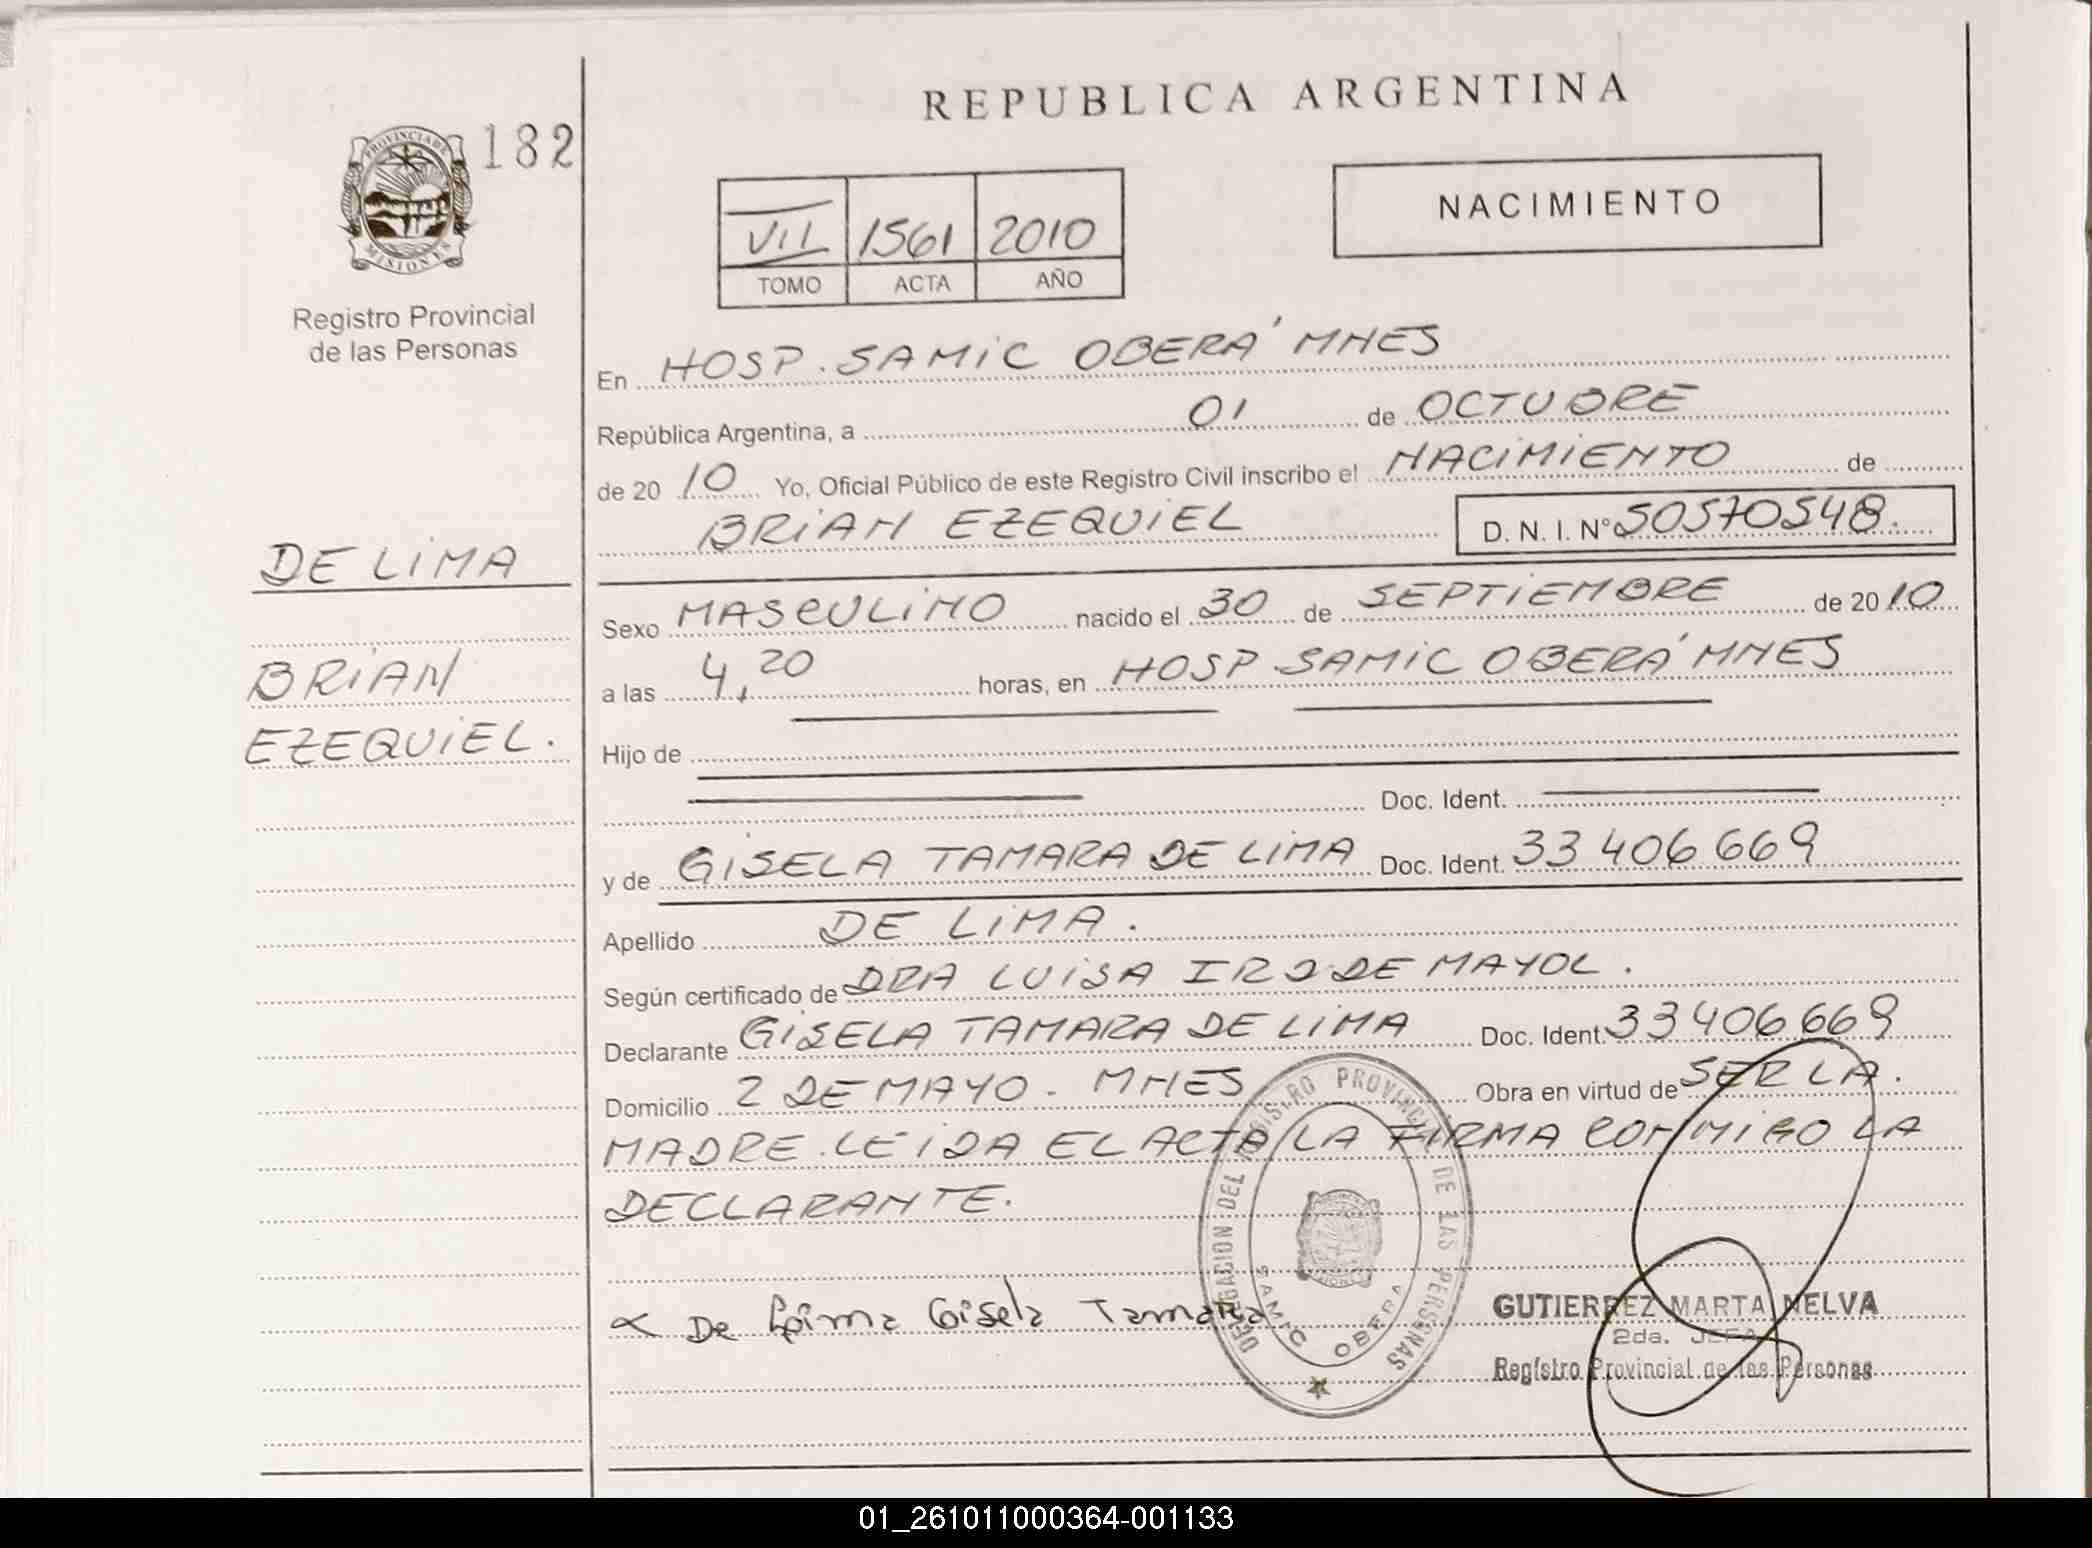 REPUBLICA ARGENTINA
PROVINCIA DE MISIONES
182
NACIMIENTO
VII 1561 2010
TOMO ACTA AÑO
Registro Provincial
de las Personas
DE LIMA
BRIAN
EZEQUIEL.
En HOSP. SAMIC OBERÁ MNES
República Argentina, a 01 de OCTUBRE
de 2010 Yo, Oficial Público de este Registro Civil inscribo el NACIMIENTO de
BRIAN EZEQUIEL D. N. I. N° 50570548.
Sexo MASCULINO nacido el 30 de SEPTIEMBRE de 2010
a las 4,20 horas, en HOSP. SAMIC OBERÁ MNES
Hijo de
Doc. Ident.
y de GISELA TAMARA DE LIMA Doc. Ident. 33 406 669
Apellido DE LIMA.
Según certificado de DRA LUISA DE MAYOL.
Declarante GISELA TAMARA DE LIMA Doc. Ident. 33406669
Domicilio 2 DE MAYO - MNES Obra en virtud de SER LA.
MADRE. LEIDA EL ACTA LA FIRMA CONMIGO LA
DECLARANTE.
De Lima Gisela Tamara
DELEGACION DEL REGISTRO PROVINCIAL DE LAS PERSONAS
SAMIC OBERA
GUTIERREZ MARTA NELVA
2da. JEFA
Registro Provincial de las Personas
01_261011000364-001133